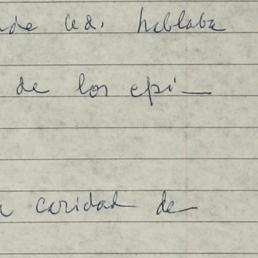 Ud. hablaba
de los epi-
caridad de